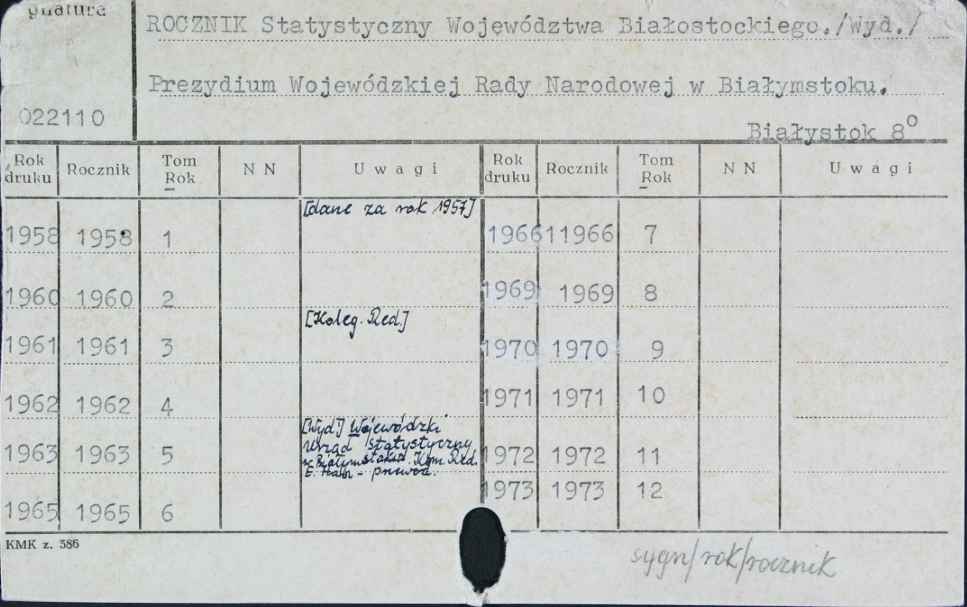 ygnatura
ROCZNIK Statystyczny Województwa Białostockiego./Wyd./
Prezydium Wojewódzkiej Rady Narodowej w Białymstoku.
022110
Białystok 8°
Rok druku Rocznik Tom Rok N N Uwagi Rok druku Rocznik Tom Rok N N Uwagi
[dane za rok 1957]
1958 1958 1 1966 11966 7
1960 1960 2 1969 1969 8
[Koleg. Red]
1961 1961 3 1970 1970 9
1962 1962 4 1971 1971 10
[Wyd] Wojewódzki
Urząd Statystyczny
w Białymstoku. Kom. Red.
E. - przewod.
1963 1963 5 1972 1972 11
1973 1973 12
1965 1965 6
KMK z. 586
sygn/rok/rocznik